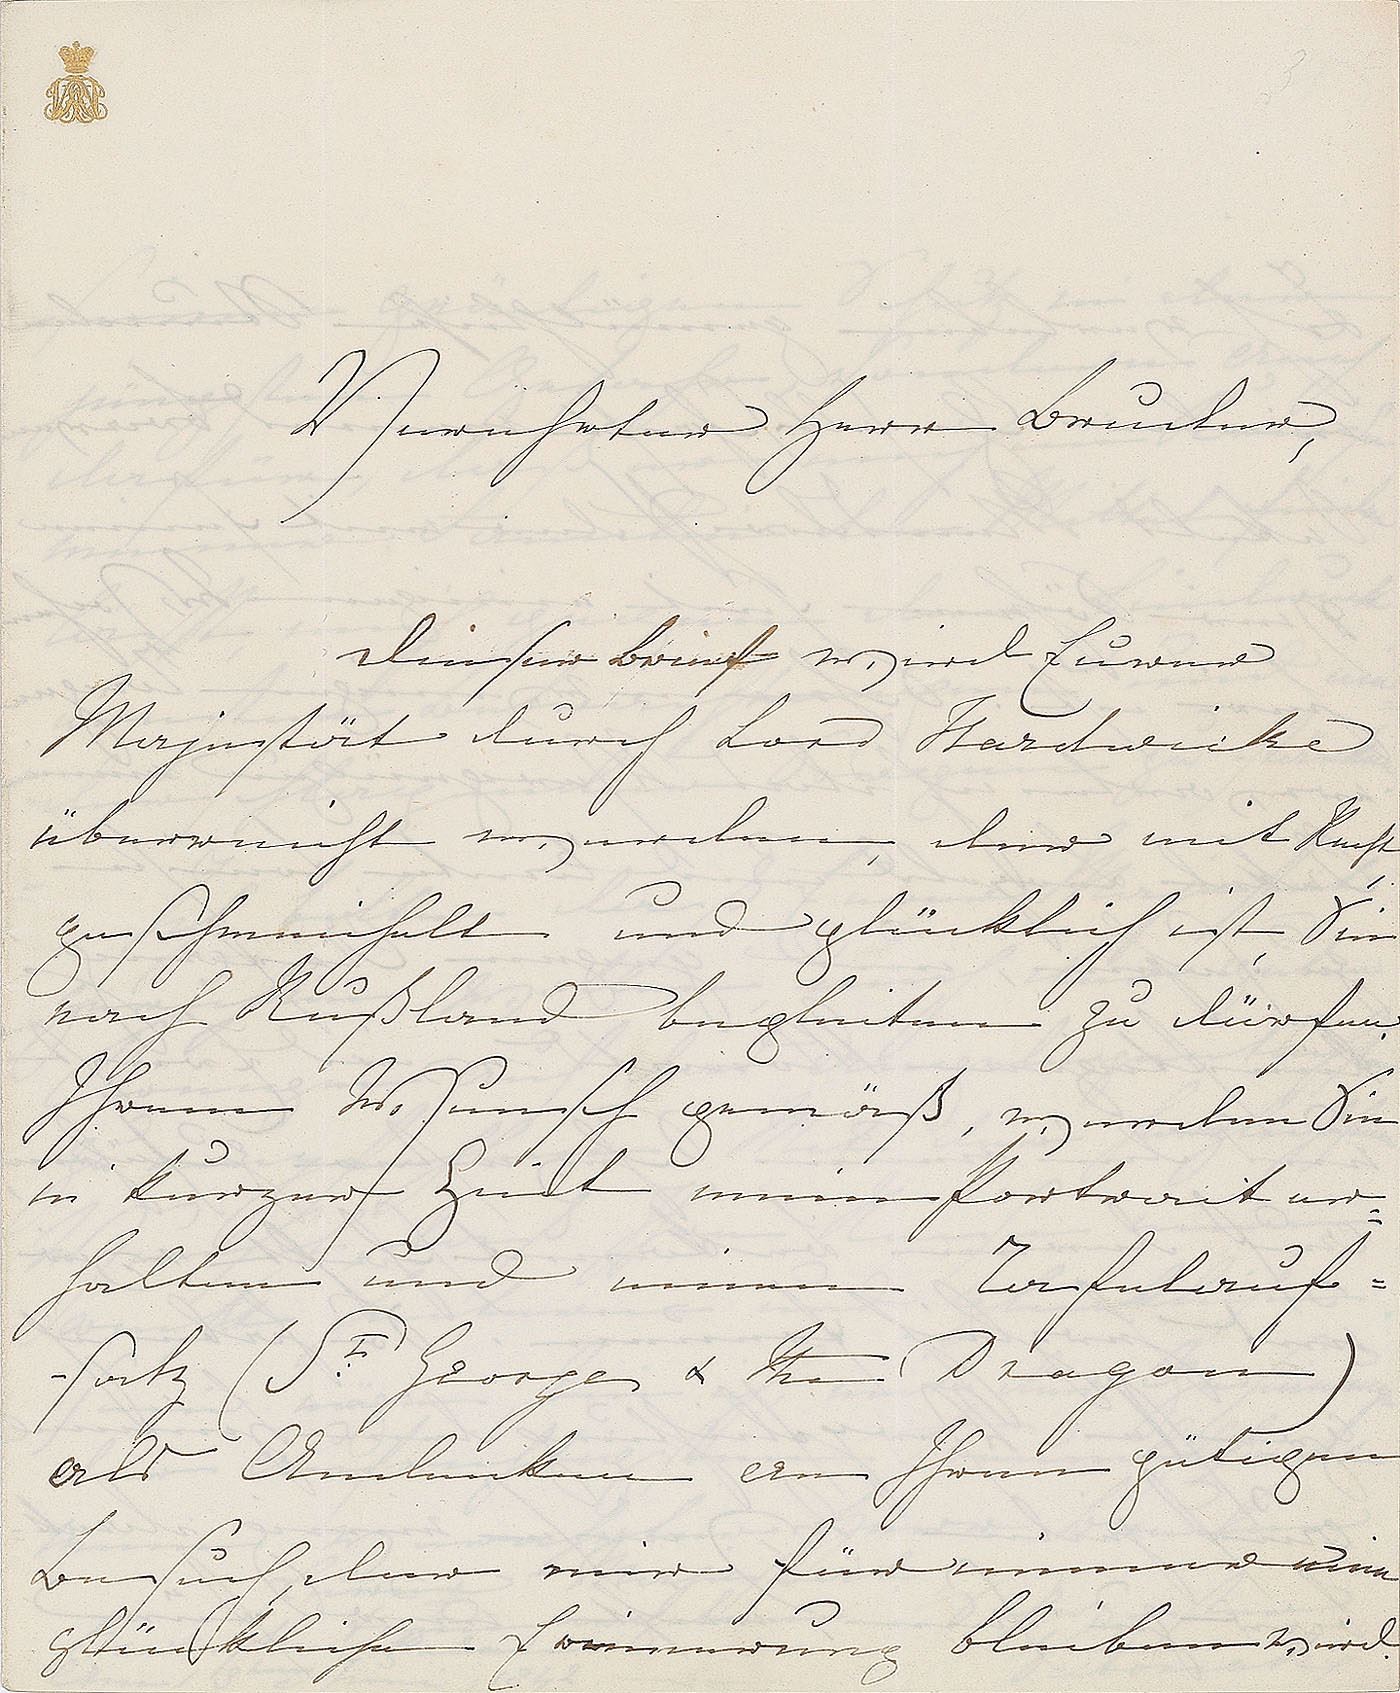 3
Verehrter Herr Bruder,
Dieser Brief wird Eurer
Majestät durch Lord Hardwicke
überreicht werden, der mit Recht
geschmeichelt und glücklich ist, Sie
nach Rußland begleiten zu dürfen.
Ihrem Wunsch gemäß, werden Sie
in kurzer Zeit mein Portrait er=
halten und einen Tafelauf=
-satz (St. George & the Dragon)
als Andenken an Ihren gütigen
Besuch, der mir für immer eine
glückliche Erinnerung bleiben wird.